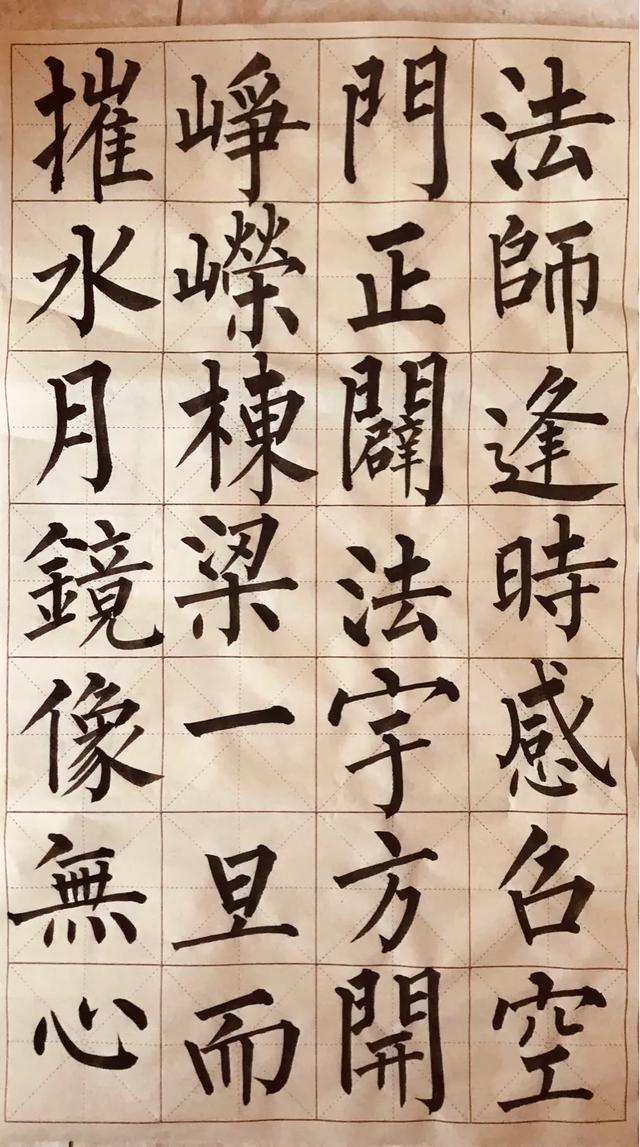 法師逢時感召空
門正闢法宇方開
崢嶸棟梁一旦而
摧水月鏡像無心